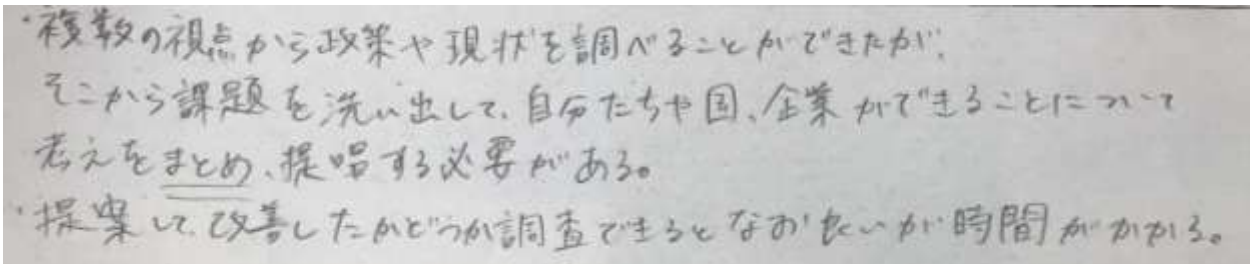 ・複数の視点から政策や現状を調べることができたが、
そこから課題を洗い出して、自分たちや国、企業ができることについて
考えをまとめ、提唱する必要がある。
・提案して、改善したかどうか調査できるとなお良いが時間がかかる。